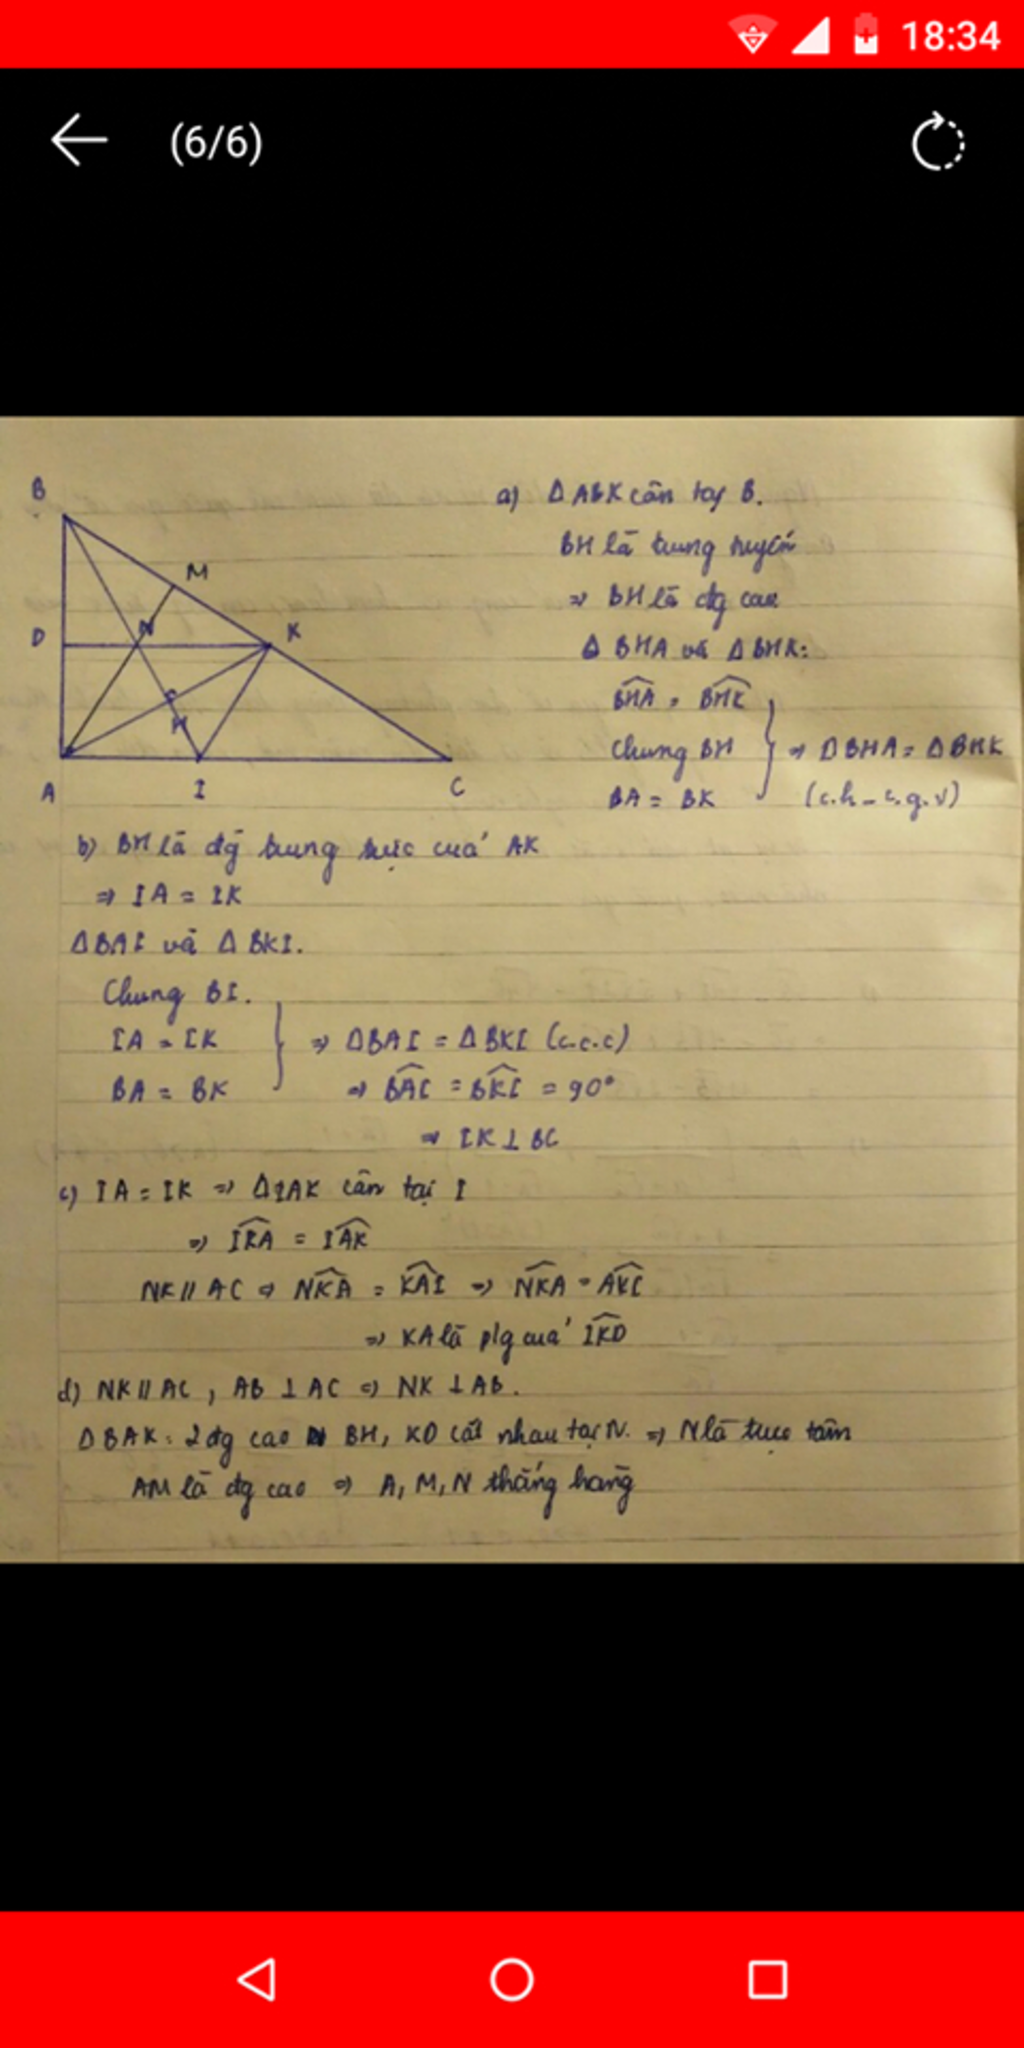 18:34
(6/6)
B
M
D
N
K
H
A
I
C
a) Δ ABK cân tại B.
BH là trung tuyến
⇒ BH là đg cao
Δ BHA và Δ BHK:
BHA = BHK
Chung BH
BA = BK
⇒ ΔBHA = ΔBHK
(c.h - c.g.v)
b) BH là đg trung trực của AK
⇒ IA = IK
ΔBAI và ΔBKI.
Chung BI.
IA = IK
BA = BK
⇒ ΔBAI = ΔBKI (c.c.c)
⇒ BAI = BKI = 90°
⇒ IK ⊥ BC
c) IA = IK ⇒ ΔIAK cân tại I
⇒ IKA = IAK
NK // AC ⇒ NKA = KAI ⇒ NKA = AKI
⇒ KA là p/g của IKD
d) NK // AC , AB ⊥ AC ⇒ NK ⊥ AB.
ΔBAK: 2 đg cao BH, KD cắt nhau tại N. ⇒ N là trực tâm
AM là đg cao ⇒ A, M, N thẳng hàng